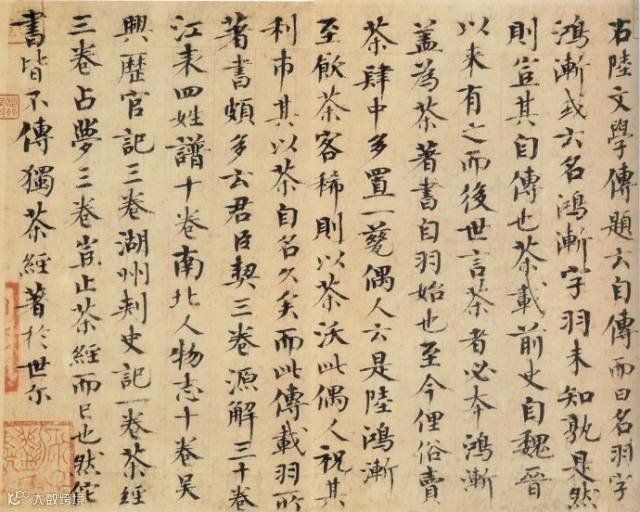 右陸文學傳題云自傳而曰名羽字
鴻漸或云名鴻漸字羽未知孰是然
則豈其自傳也茶載前史自魏晉
以来有之而後世言茶者必本鴻漸
盖為茶著書自羽始也至今俚俗賣
茶肆中多置一甆偶人云是陸鴻漸
至飲茶客稀則以茶沃此偶人祝其
利市其以茶自名久矣而此傳載羽所
著書頗多云君臣契三卷源解三十卷
江表四姓譜十卷南北人物志十卷吴
興歷官記三卷湖州刺史記一卷茶經
三卷占夢三卷豈止茶經而已也然佗
書皆不傳獨茶經著於世尔
大数跨境